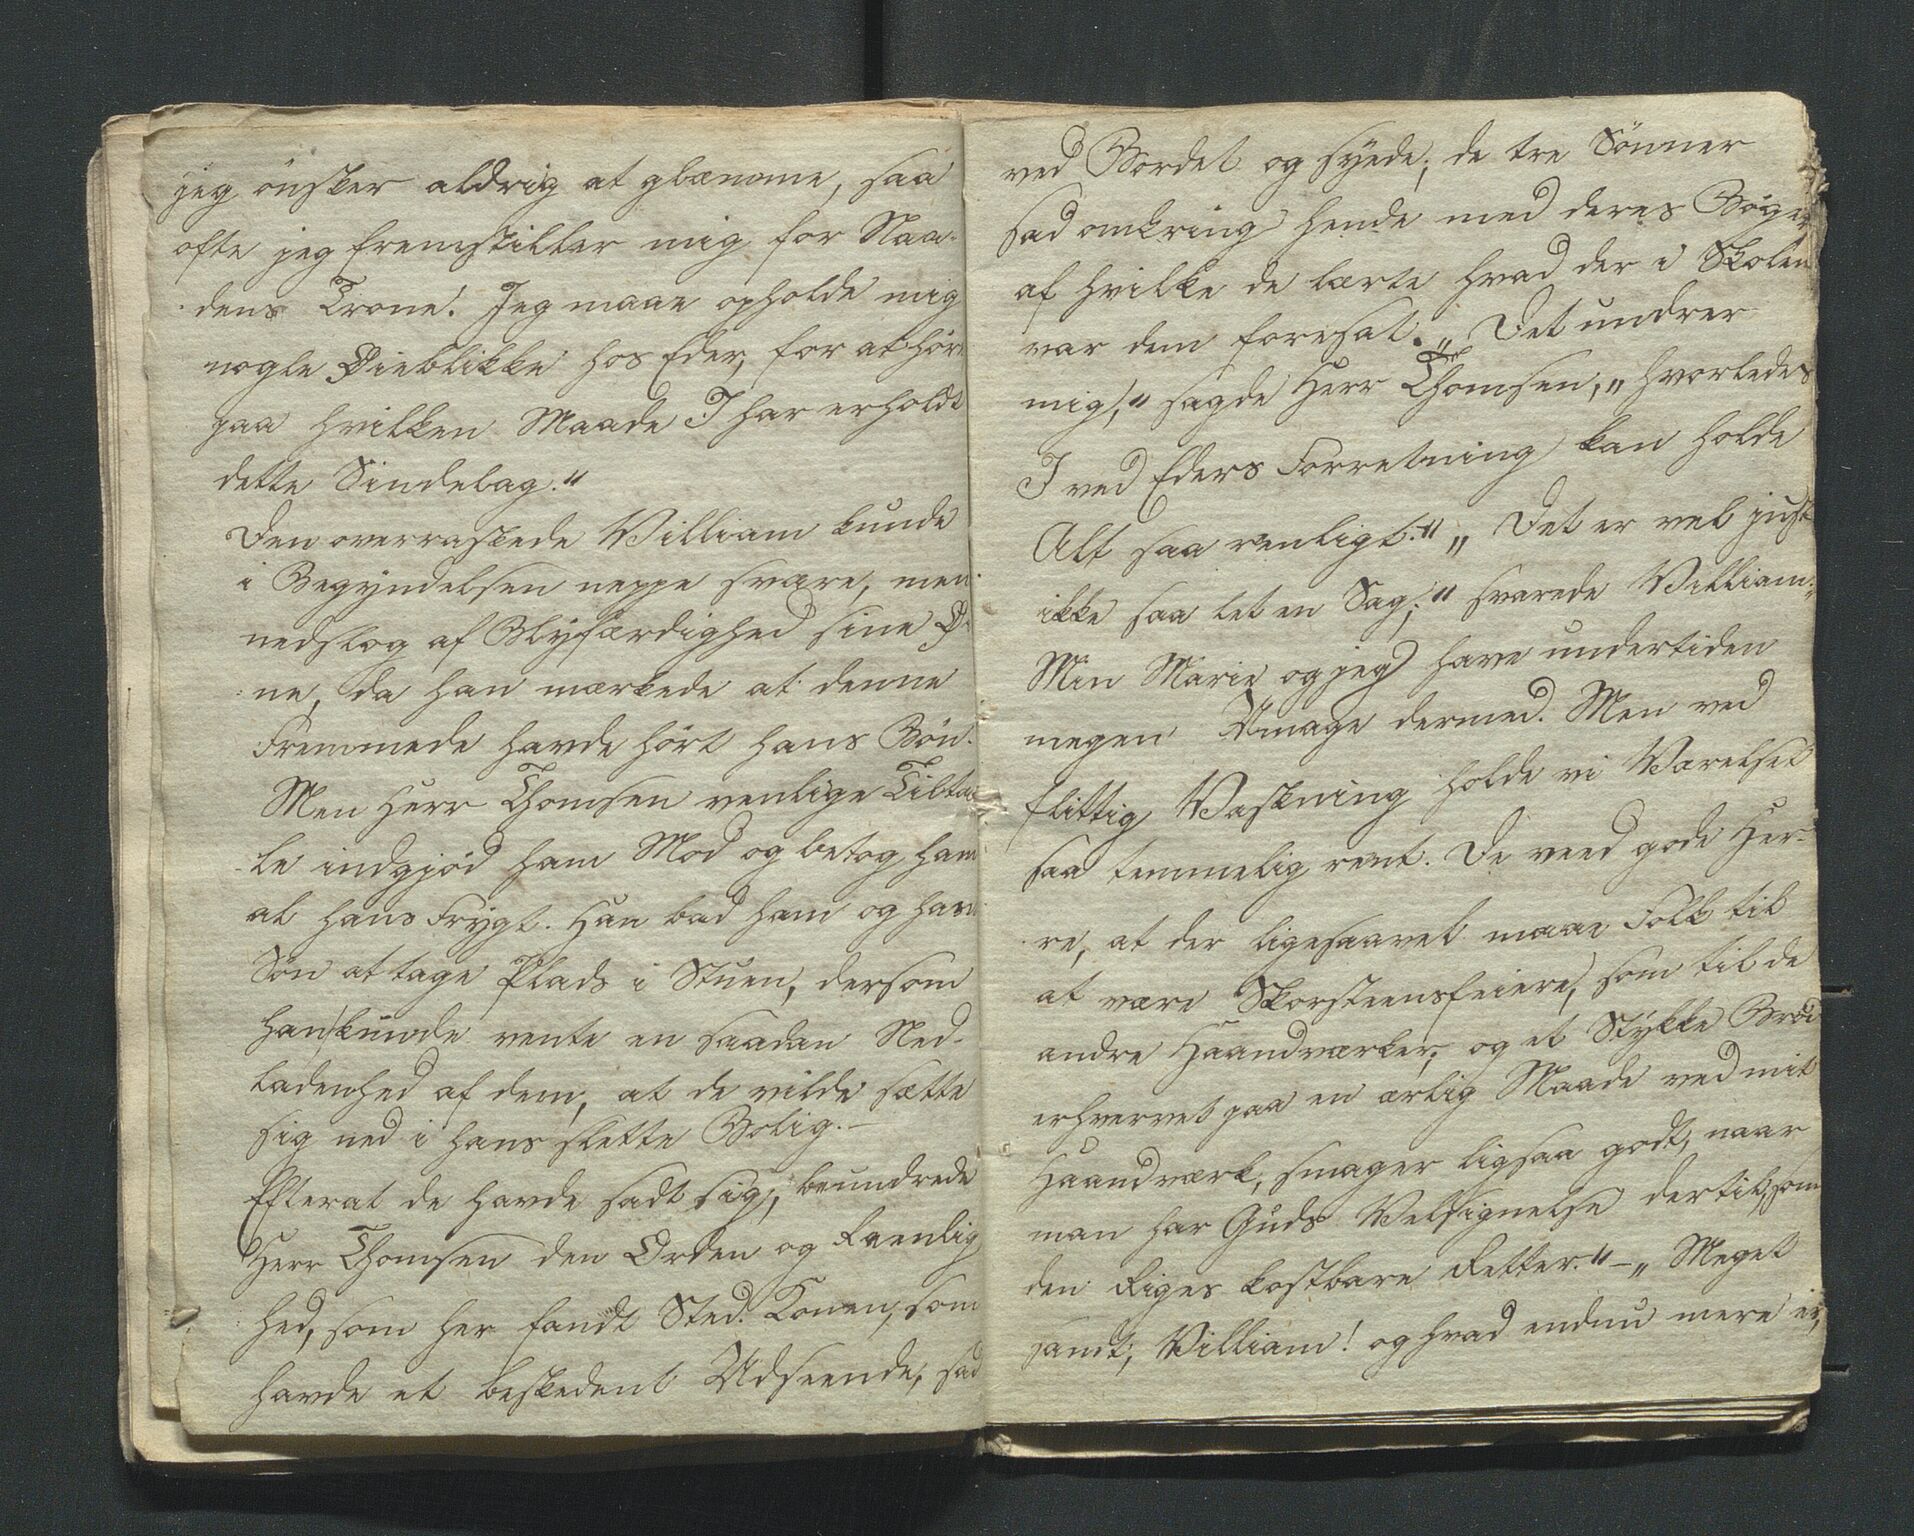 jeg ønsker aldrig at glemme, saa
ofte jeg fremstiller mig for Naa-
dens Trone. Jeg maae opholde mig
nogle Øieblikke hos Eder, for at høre
paa hvilken Maade I har erholdt
dette Sindelag."
Den overraskede William kunde
i Begyndelsen neppe svare, men
nedslog af Blyfærdighed sine Ø-
ne, da han mærkede at denne
Fremmede havde hørt hans Bøn.
Men Herr Thomsen venlige Tilta-
le indgjød ham Mod og betog ham
al hans Frygt. Han bad ham og hans
Søn at tage Plads i Stuen, dersom
han kunde vente en saadan Ned-
ladenhed af dem, at de vilde sætte
sig ned i hans slette Bolig.—
Efterat de havde sadt sig, beundrede
Herr Thomsen den Orden og Reenlig
hed, som her fandt Sted. Konen, som
havde et beskedent Udseende, sad
ved Bordet og syede; de tre Sönner
sad omkring hende med deres Bøger
af hvilke de lærte hvad der i Skolen
var dem foresat. „Det undrer
mig," sagde Herr Thomsen, „hvorledes
I ved Eders Forretning kan holde
Alt saa renligt." „Det er vel just
ikke saa let en Sag," svarede William „
Min Marie og jeg have undertiden
megen Umage dermed. Men ved
flittig Vaskning holde vi Værelset
saa temmelig rent. De veed gode Her-
re, at der ligesaavel maae Folk til
at være Skorsteensfeiere, som til de
andre Haandværker, og et Stykke Brød
erhvervet paa en ærlig Maade ved mit
Haandværk, smager ligsaa godt, naar
man har Guds Velsignelse dertil, som
den Riges kostbare Retter."—„Meget
samt, William! og hvad endnu mere er,